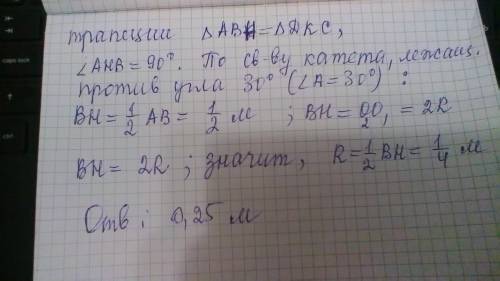 трапеции △ABH=△DKC,
∠AHB = 90°. По св-ву катета, лежащ.
против угла 30° (∠A = 30°) :
BH = 1/2 AB = 1/2 м ; BH = OO₁/2 = 2R
BH = 2R ; значит, R = 1/2 BH = 1/4 м
Отв: 0,25 м